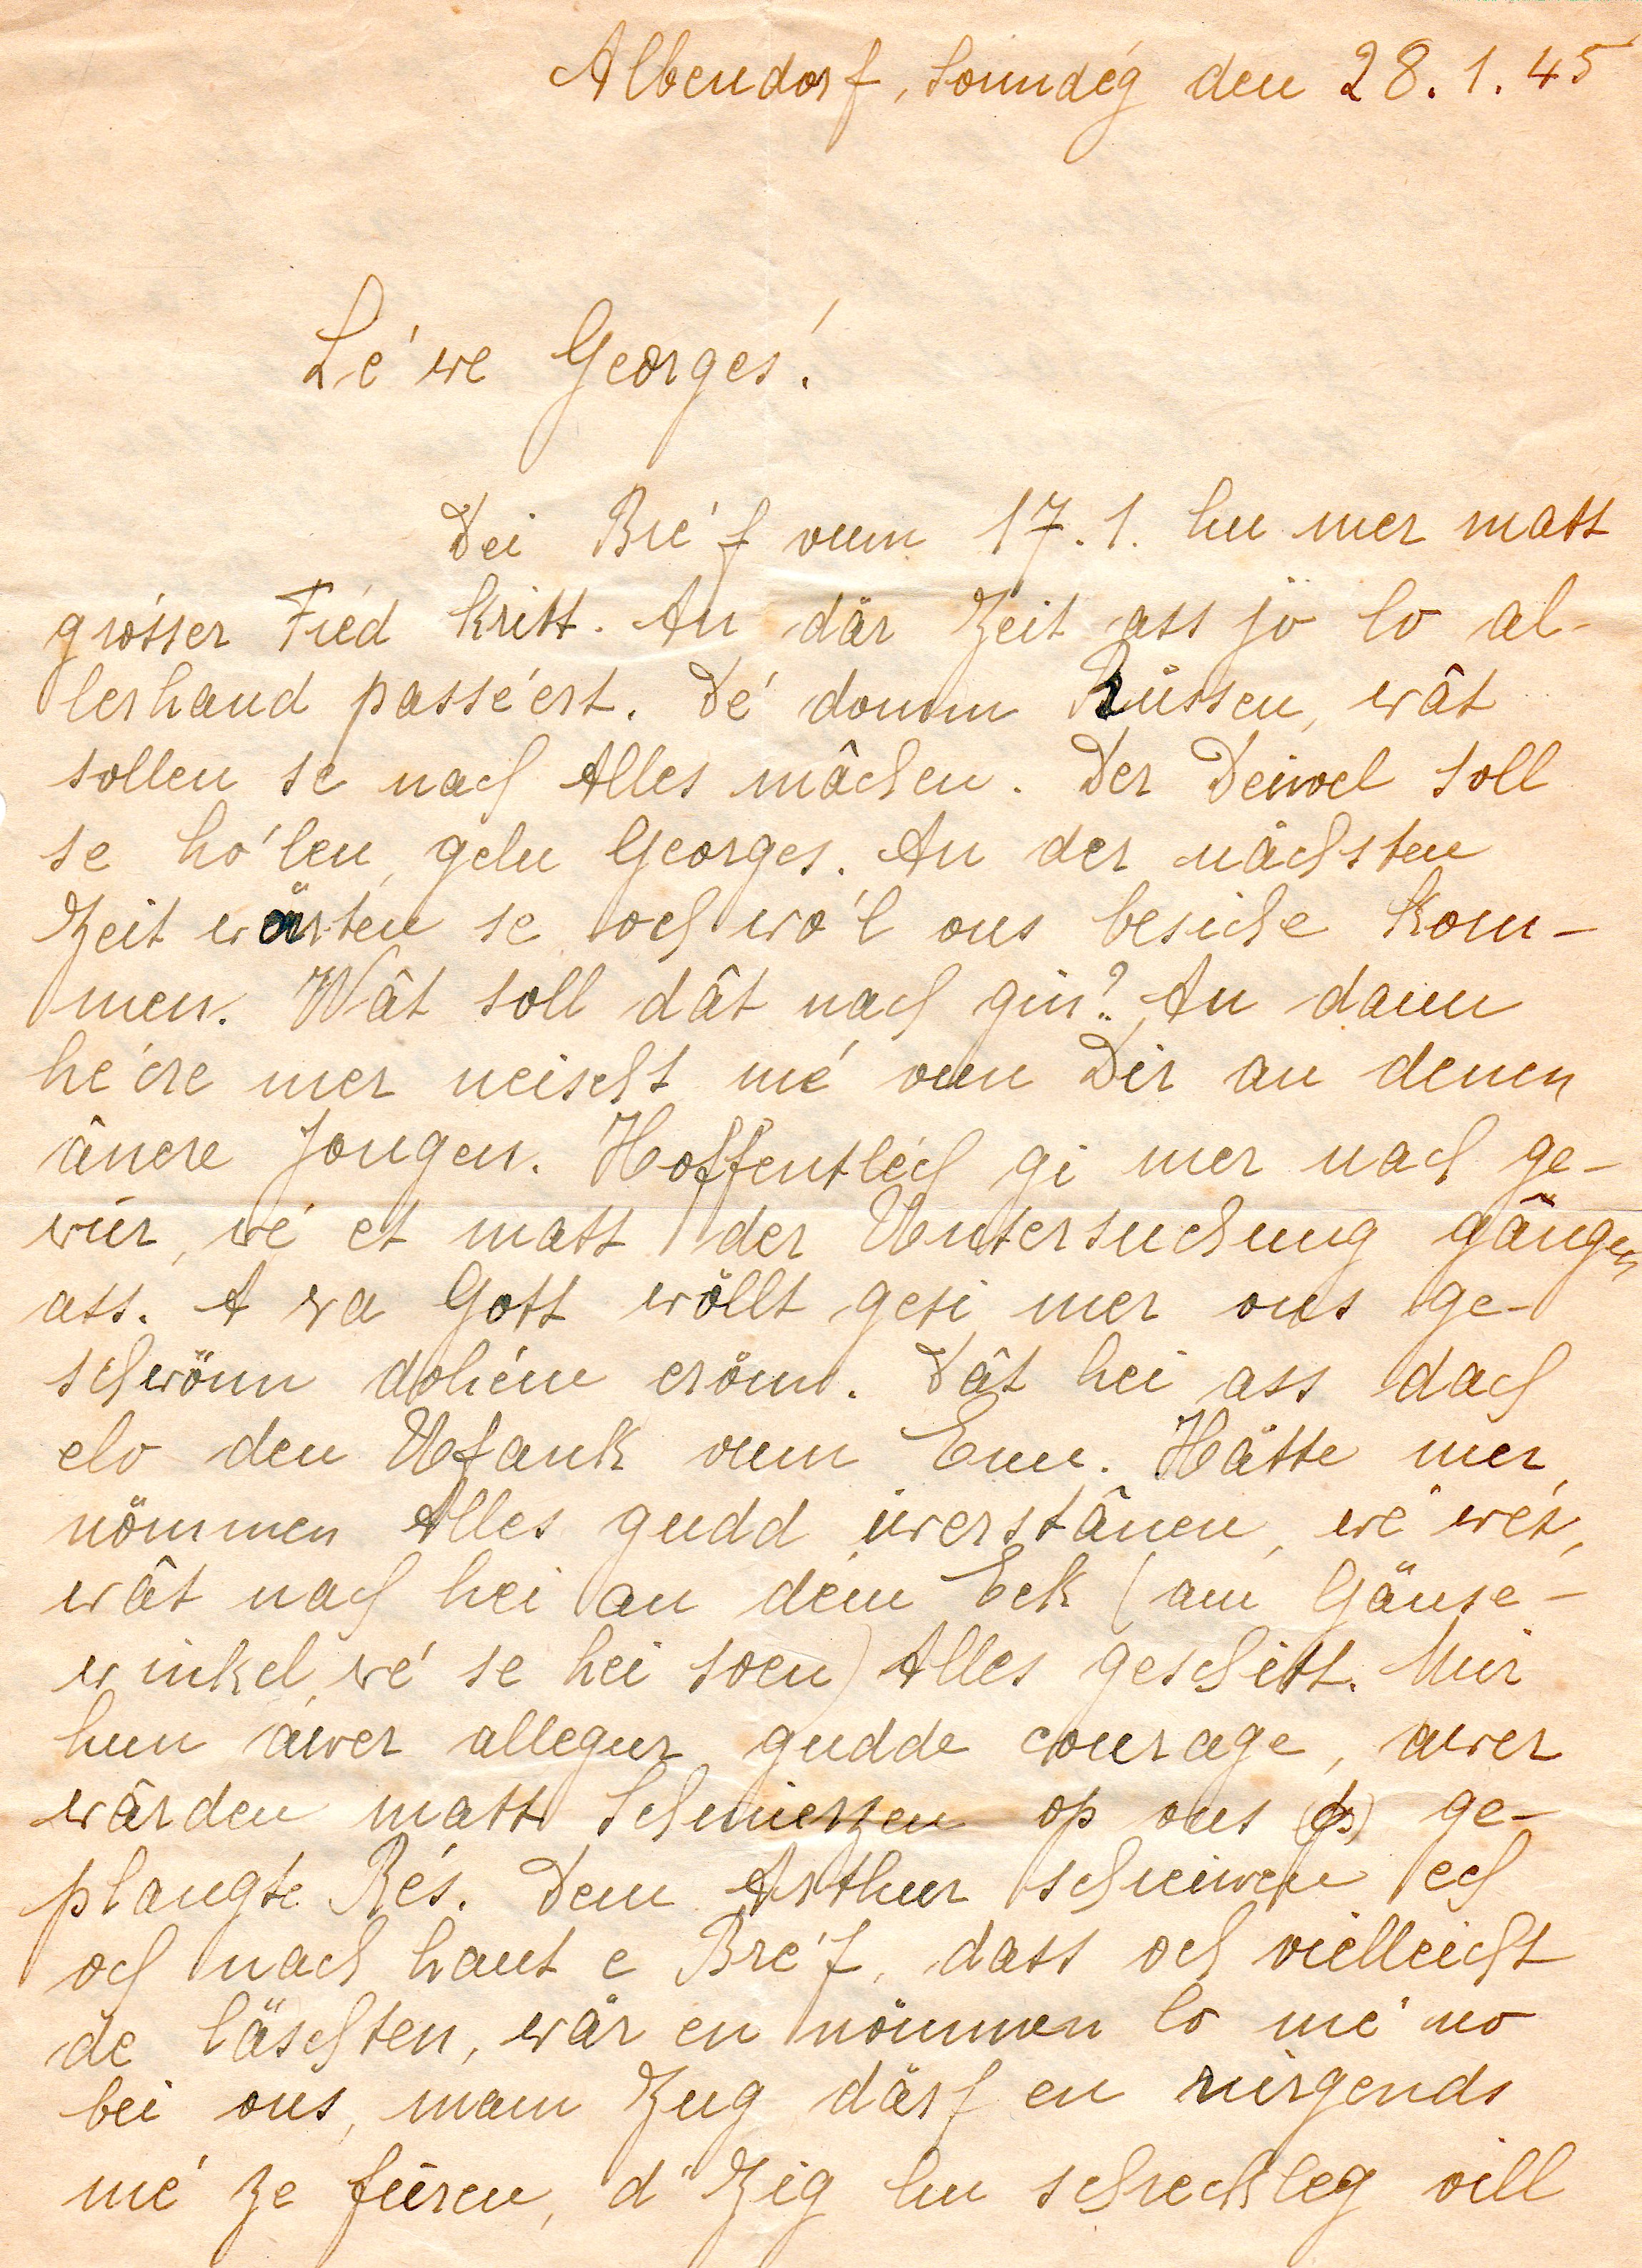 Albendorf, Sonndég den 28.1.45
Lé'we Georges!
Dei Bré'f vum 17.1. hu mer matt
gro'sser Fréd kritt. An där Zeit ass jo lo al-
lerhand passé'ert. Dé' domm Russen, wât
sollen se nach Alles mâchen. Der Deiwel soll
se ho'len, gelu Georges. An der nächsten
Zeit wärten se och wo'l ons besiche kom-
men. Wât soll dât nach gin? An dann
hé'ere mer neischt mé' vun Dir an denen
ânere Jongen. Hoffentlech gi mer nach ge-
wur, wé' et matt der Untersuchung gângen
ass. A wa Gott wöllt gesi mer ons ge-
schwönn dohém eröm. Dât hei ass dach
elo den Ufank vum Enn. Hätte mer
nömmen Alles gudd iwerstânen, wé' wés,
wât nach hei an dém Eck (am Gänse-
winkel, wé' se hei soen) Alles geschitt. Mir
hun awer allegur gudde courage, awer
wârden matt Schmierzen op ons (op) ge-
plangte Rés. Dem Arthur schreiwen ech
och nach haut e Bré'f, dass och vielleicht
de läschten, wär en nömmen lo mé' no
bei ons, mam Zug därf en nirgends
mé' ze fueren, d'Zig hu schreckleg vill